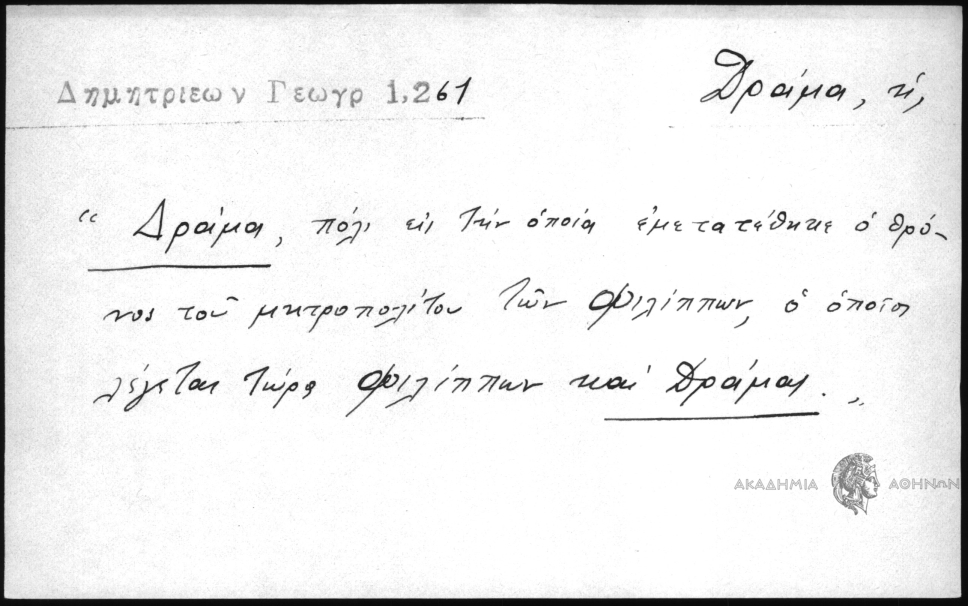 Δημητριεων Γεωγρ 1,261
Δράμα, ἡ,
“ Δράμα, πόλι εις τήν ὁποία ἐμετατέθηκε ὁ θρό-
νος τοῦ μητροπολίτου τῶν Φιλίππων, ὁ ὁποῖος
λέγεται τώρα Φιλίππων καί Δράμας. „
ΑΚΑΔΗΜΙΑ ΑΘΗΝΩΝ